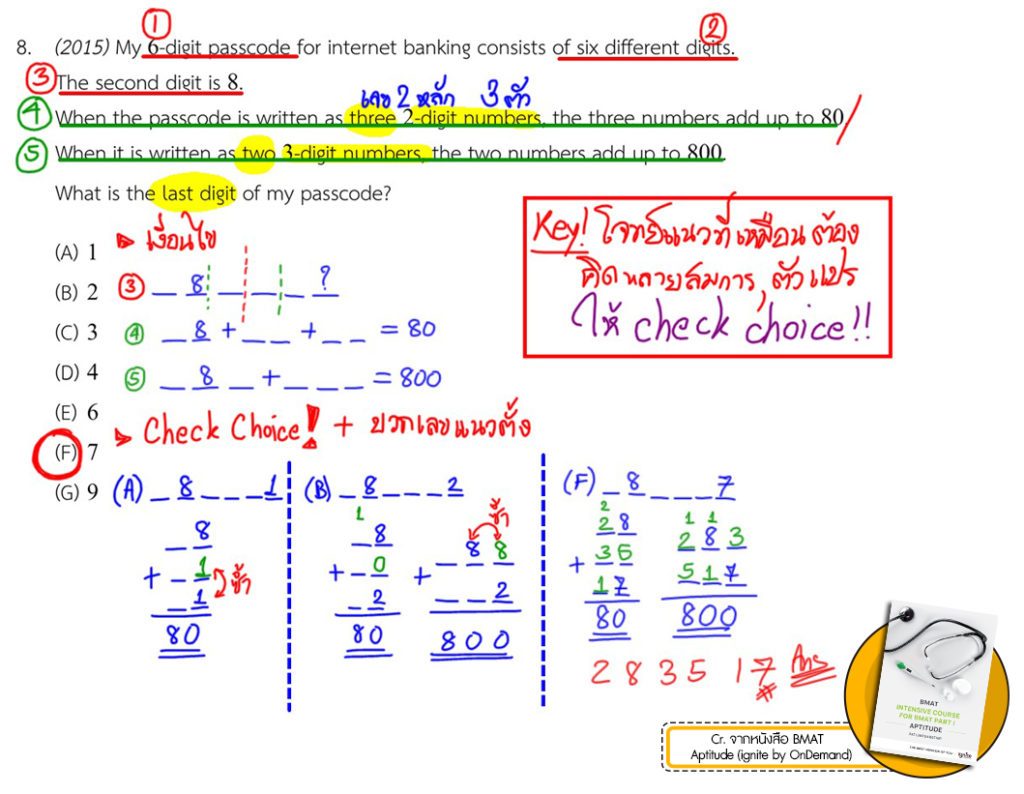 ①
②
8. (2015) My 6-digit passcode for internet banking consists of six different digits.
③ The second digit is 8.
เลข 2 หลัก 3 ตัว
④ When the passcode is written as three 2-digit numbers, the three numbers add up to 80.
⑤ When it is written as two 3-digit numbers, the two numbers add up to 800.
What is the last digit of my passcode?
Key! โจทย์แนวที่เหมือนต้อง
คิดหลายสมการ, ตัวแปร
ให้ check choice!!
(A) 1
(B) 2
(C) 3
(D) 4
(E) 6
(F) 7
(G) 9
▶ เงื่อนไข
③ _ 8 _ _ _ ?
④ _ 8 + _ _ + _ _ = 80
⑤ _ 8 _ + _ _ _ = 800
▶ Check Choice! + บวกเลขแนวตั้ง
(A) _ 8 _ _ _ 1
_ 8
+ _ 1
_ 1
ซ้ำ
80
(B) _ 8 _ _ _ 2
1
_ 8
+ _ 0
_ 2
80
ซ้ำ
_ 8 8
+ _ _ 2
800
(F) _ 8 _ _ _ 7
2
28
+ 35
17
80
1 1
283
517
800
283517 Ans
BMAT
INTENSIVE COURSE
FOR BMAT PART I
APTITUDE
ignite
Cr. จากหนังสือ BMAT
Aptitude (ignite by OnDemand)